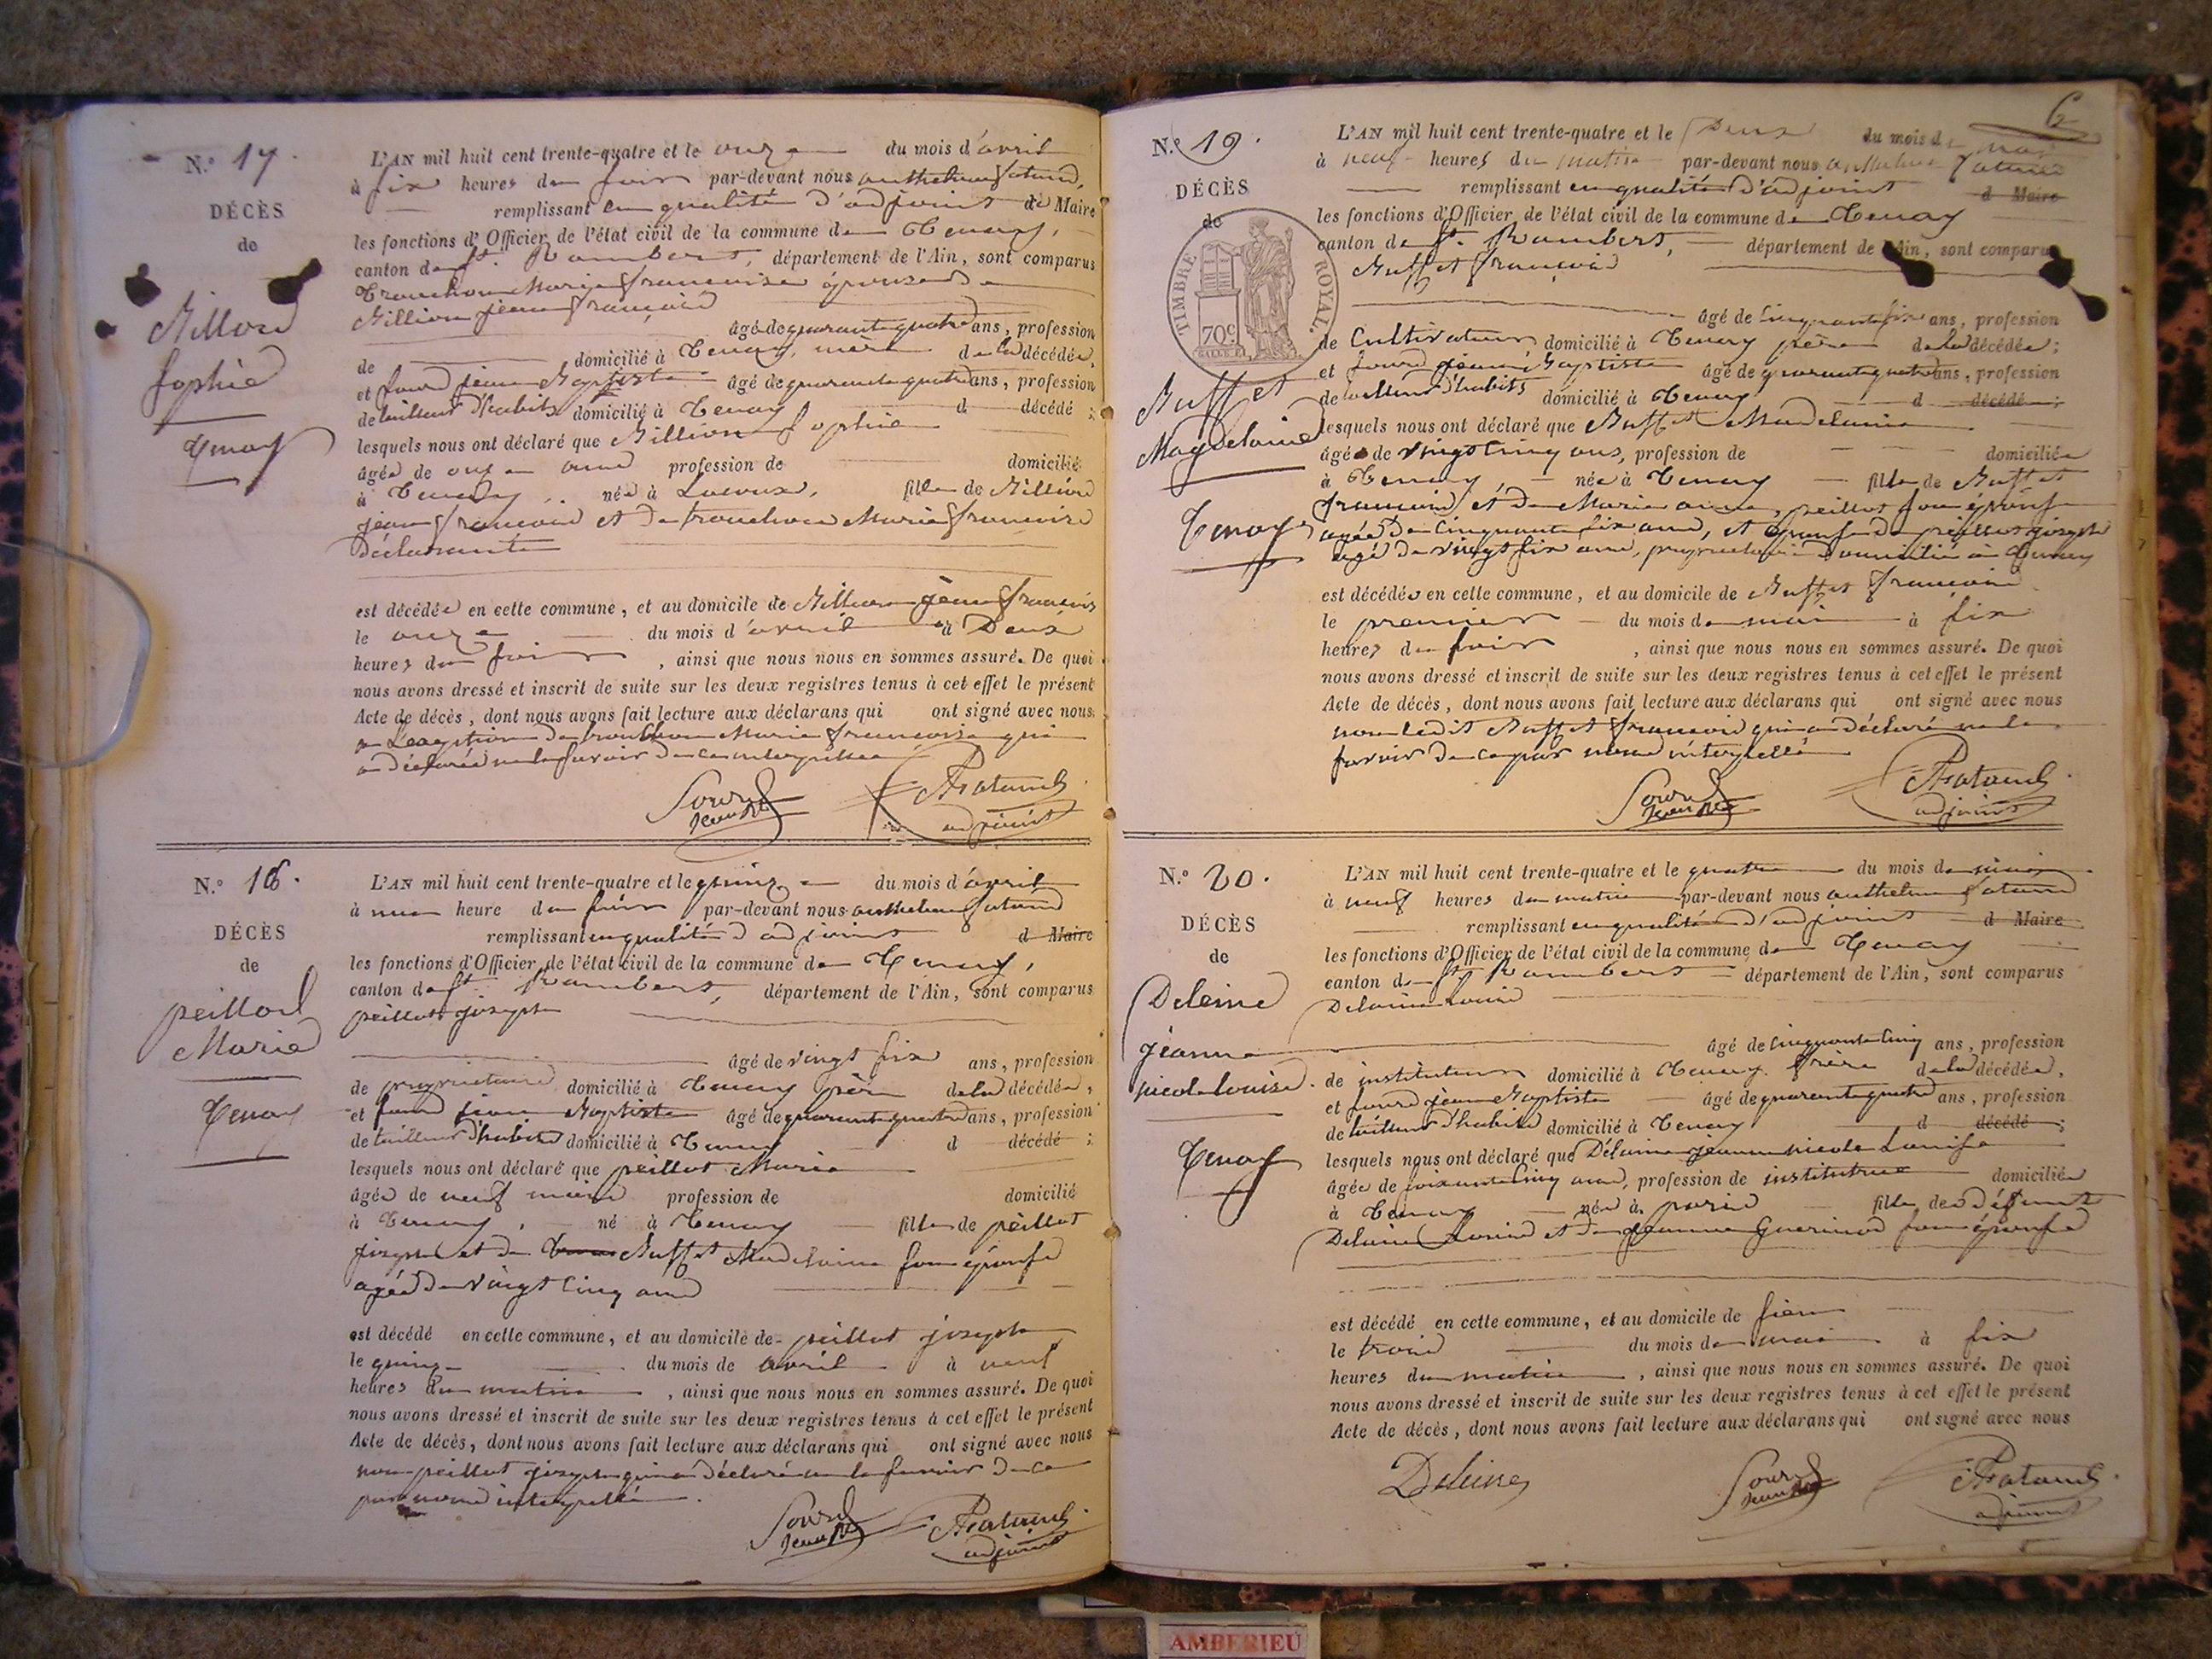 N.º 17.
DÉCÈS
de
Million
Sophie
Tenay
L'AN mil huit cent trente-quatre et le onze du mois d'avril
à six heures du soir par-devant nous anthelme
remplissant en qualité d'adjoint de Maire
les fonctions d'Officier de l'état civil de la commune de Tenay,
canton de St. Rambert, département de l'Ain, sont comparus
Marie françoise épouse de
Million jean françois
âgé de quarante quatre ans, profession
de domicilié à Tenay, mère de la décédée,
et jean Baptiste âgé de quarante quatre ans, profession
de tailleur d'habits domicilié à Tenay d décédé ;
lesquels nous ont déclaré que Million Sophie
âgée de onze ans profession de domicilié
à Tenay, née à fille de Million
jean françois et de Marie françoise
Déclarante
est décédée en cette commune, et au domicile de Million jean françois
le onze du mois d'avril à Deux
heures du soir, ainsi que nous nous en sommes assuré. De quoi
nous avons dressé et inscrit de suite sur les deux registres tenus à cet effet le présent
Acte de décès, dont nous avons fait lecture aux déclarans qui ont signé avec nous
a L'exception de Marie françoise qui
a déclarée ne le savoir de ce interpellée
adjoint
N.º 18.
DÉCÈS
de
peillod
Marie
Tenay
L'AN mil huit cent trente-quatre et le quinze du mois d'avril
à une heure du soir par-devant nous anthelme
remplissant en qualité d'adjoint d Maire
les fonctions d'Officier de l'état civil de la commune de Tenay,
canton de St. Rambert, département de l'Ain, sont comparus
peillot joseph
âgé de vingt six ans, profession
de propriétaire domicilié à Tenay père de la décédée,
et jean Baptiste âgé de quarante quatre ans, profession
de tailleur d'habits domicilié à Tenay d décédé ;
lesquels nous ont déclaré que peillot Marie
âgée de neuf mois profession de domicilié
à Tenay, né à Tenay fille de peillot
joseph et de Buffet Madelaine son épouse
agée De vingt cinq ans
est décédé en cette commune, et au domicile de peillot joseph
le quinze du mois de avril à neuf
heures du matin, ainsi que nous nous en sommes assuré. De quoi
nous avons dressé et inscrit de suite sur les deux registres tenus à cet effet le présent
Acte de décès, dont nous avons fait lecture aux déclarans qui ont signé avec nous
non peillot joseph qui a Déclaré ne le savoir De ce
par nous interpellé.
adjoint
6
N.º 19.
DÉCÈS
de
TIMBRE ROYAL.
70c
Buffet
Magdelaine
Tenay
L'AN mil huit cent trente-quatre et le Deux du mois de mai
à neuf heures du matin par-devant nous anthelme
remplissant en qualité d'adjoint d Maire
les fonctions d'Officier de l'état civil de la commune de Tenay
canton de St. Rambert, département de l'Ain, sont comparus
Buffet françois
âgé de cinquante six ans, profession
de Cultivateur domicilié à Tenay père de la décédée ;
et jean Baptiste âgé de quarante quatre ans, profession
de tailleur d'habits domicilié à Tenay d décédé ;
lesquels nous ont déclaré que Buffet Madelaine
âgée de vingt cinq ans, profession de domiciliée
à Tenay, née à Tenay fille de Buffet
françois et de Marie anne peillot son épouse
agée de cinquante six ans, et épouse de peillot joseph
agé de vingt six ans, propriétaire Domicilié à Tenay
est décédée en cette commune, et au domicile de Buffet françois
le premier du mois de mai à six
heures du soir, ainsi que nous nous en sommes assuré. De quoi
nous avons dressé et inscrit de suite sur les deux registres tenus à cet effet le présent
Acte de décès, dont nous avons fait lecture aux déclarans qui ont signé avec nous
non ledit Buffet françois qui a déclaré ne le
savoir de ce par nous interpellé
adjoint
N.º 20.
DÉCÈS
de
Deleine
jeanne
nicole louise.
Tenay
L'AN mil huit cent trente-quatre et le quatre du mois de
à neuf heures du matin par-devant nous anthelme
remplissant en qualité d'adjoint d Maire
les fonctions d'Officier de l'état civil de la commune de Tenay
canton de St Rambert département de l'Ain, sont comparus
Delaine Louis
âgé de cinquante cinq ans, profession
de instituteur domicilié à Tenay. frère de la décédée,
et jean Baptiste âgé de quarante quatre ans, profession
de tailleur d'habits domicilié à Tenay d décédé ;
lesquels nous ont déclaré que Délaine jeanne nicole Louise
âgée de soixante cinq ans, profession de institutrice domiciliée
à Tenay née à paris fille de Défunt
Delaine Louis et de jeanne son épouse
est décédé en cette commune, et au domicile de sien
le trois du mois de mai à six
heures du matin, ainsi que nous nous en sommes assuré. De quoi
nous avons dressé et inscrit de suite sur les deux registres tenus à cet effet le présent
Acte de décès, dont nous avons fait lecture aux déclarans qui ont signé avec nous
Deleine
adjoint
AMBERIEU